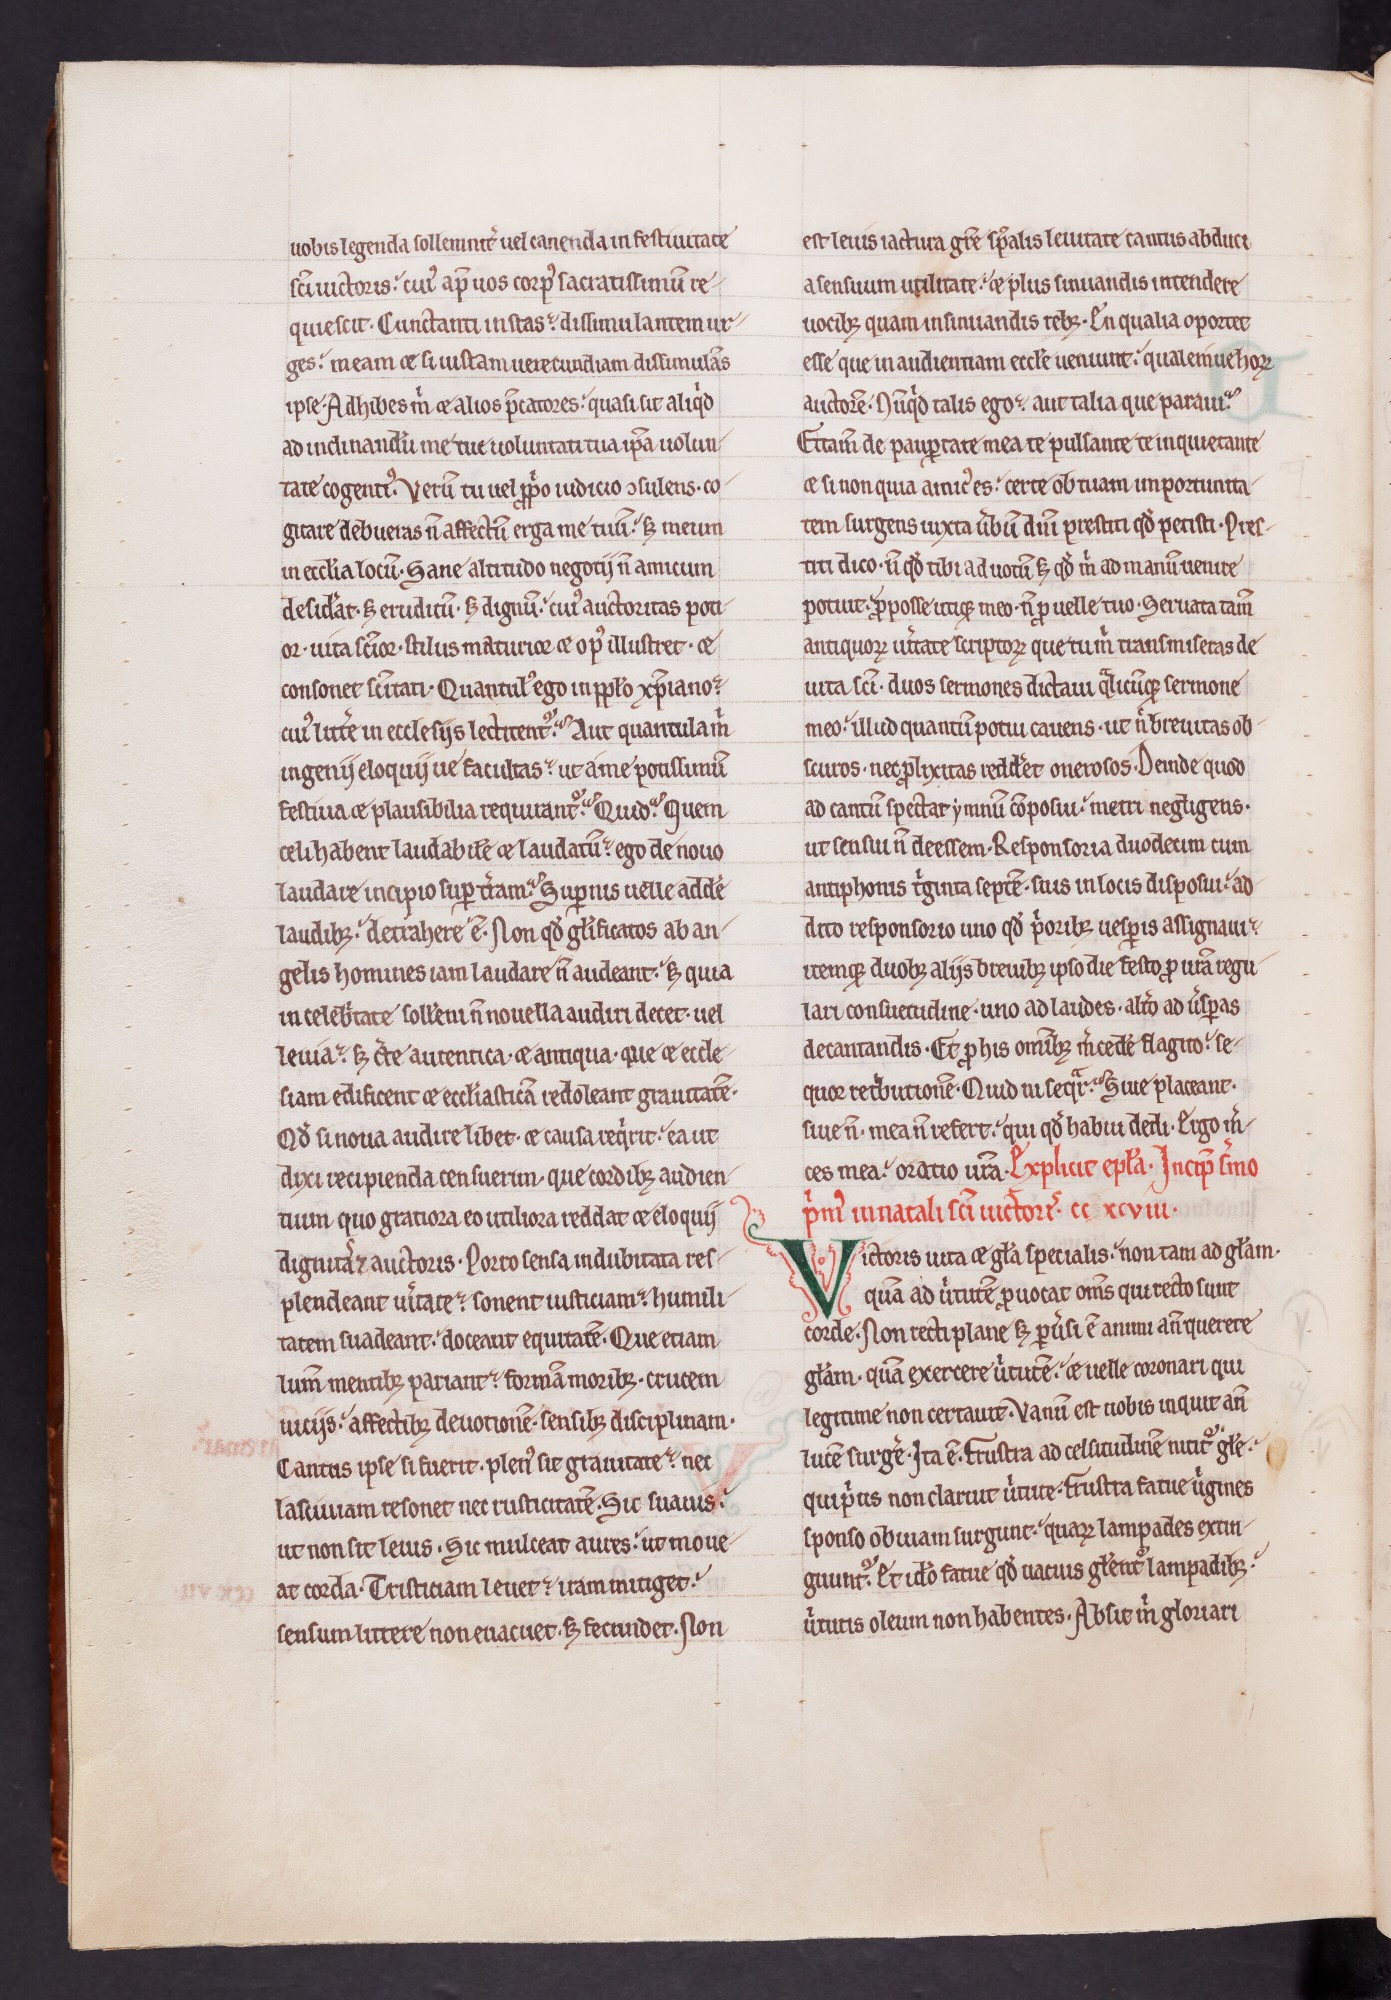 uobis legenda sollemnit᷑ uel canenda in festiuitate
sc̄i uictoris. cuiꝰ ap̄ uos corpꝰ sacratissimū re-
quiescit. Cunctanti instas. dissimulantem ur-
ges. meam & si iustam uerecundiam dissimulās
ipse. Adhibes m̄ & alios p̄catores. quasi sit aliqͥd
ad inclinandū me tue uoluntati tua ip̄a uolun-
tate cogentiꝰ. Verū tu uel ꝓpͥo iudicio ↄsulens. co-
gitare debueras n̄ affectū erga me tuū. sꝫ meum
in eccl̄ia locū. Sane altitudo negotij n̄ amicum
desid᷑at. sꝫ eruditū. sꝫ dignū. cuiꝰ auctoritas poti-
or. uita sc̄ior. stilus maturior & opꝰ illustret. &
consonet sc̄itati. Quantulꝰ ego in pp̄lo xp̄iano.
cuiꝰ litt᷑e in ecclesijs lectitent᷑. Aut quantula m̄
ingenij eloquij ue facultas. ut a me potissimū
festiua & plausibilia requirant᷑. Quid. Quem
celi habent laudabile & laudatū. ego de nouo
laudare incipio suꝑ t᷑ram. Suꝑnis uelle add᷑e
laudibꝫ. detrahere ē. Non qđ gl̄ificatos ab an-
gelis homines iam laudare n̄ audeant. sꝫ quia
in celeb᷑tate solleni n̄ nouella audiri decet. uel
leuia. sꝫ c᷑te autentica. & antiqua. que & eccle-
siam edificent & eccl̄iasticā redoleant grauitatē.
Qđ si noua audire libet. & causa reqͥrit. ea ut
dixi recipienda censuerim. que cordibꝫ audien
tium quo gratiora eo utiliora reddat & eloquij
dignitas & auctoris. Porro sensa indubitata res-
plendeant u᷑itate. sonent iusticiam. humili-
tatem suadeant. doceant equitatē. Que etiam
lum̄ mentibꝫ pariant. formā moribꝫ. crucem
uicijs. affectibꝫ deuotionē. sensibꝫ disciplinam.
Cantus ipse si fuerit. plenꝰ sit grauitate. nec
lasciuiam resonet nec rusticitatē. Sic suauis.
ut non sit leuis. Sic mulceat aures. ut moue-
at corda. Tristiciam leuet. iram mitiget.
sensum littere non euacuet. sꝫ fecundet. Non
est leuis iactura gr̄e sp̄alis leuitate cantus abduci
a sensuum utilitate. & plus sinuandis intendere
uocibꝫ quam insinuandis rebꝫ. En qualia oportet
esse que in audientiam eccl̄e ueniunt. qualem ue hoꝝ
auctorē. Nūqͥd talis ego. aut talia que paraui.
Et tam̄ de pauꝑtate mea te pulsante te inquietante
& si non quia amicꝰ es. certe ob tuam inportunita-
tem surgens iuxta u᷑bū dn̄i prestiti qđ petisti. Pres-
titi dico. n̄ qđ tibi ad uotū sꝫ qđ m̄ ad manū uenire
potuit. ꝓ posse utiqꝫ meo. n̄ ꝓ uelle tuo. Seruata tam̄
antiquoꝝ u᷑itate scriptoꝝ que tu m̄ transmiseras de
uita sc̄i. duos sermones dictaui qͣlicūqꝫ sermone
meo. illud quantū potui cauens. ut n̄ breuitas ob-
scuros. nec ꝓlixitas redd᷑et onerosos. Deinde quod
ad cantū spectat ymnū cōposui. metri negligens.
ut sensui n̄ deessem. Responsoria duodecim cum
antiphonis tͥginta septē. suis in locis disposui. ad-
dito responsorio uno qđ pͥoribꝫ uesꝑis assignaui.
itemqꝫ duobꝫ alijs breuibꝫ ipso die festo ꝓ ur̄a regu-
lari consuetudine. uno ad laudes. alt᷑o ad u᷑sꝑas
decantandis. Et ꝓ his om̄ibꝫ m᷑cedē flagito. se-
quor retͥbutionē. Quid ni seqͣr. Siue placeant.
siue n̄. mea n̄ refert. qui qđ habui dedi. Ergo m᷑-
ces mea. oratio ur̄a. Explicit epl̄a. Incip̄ s᷑mo
pͥmꝰ in natali sc̄i uictor᷑. cc xcviii.
Victoris uita & gl̄a specialis. non tam ad gl̄am.
quā ad u᷑tutē ꝓuocat om̄s qui recto sunt
corde. Non recti plane sꝫ ꝑu᷑si ē animi an̄ querere
gl̄am. quā exercere u᷑tutē. & uelle coronari qui
legitime non certauit. Vanū est uobis inquit an̄
lucē surg᷑e. Ita ē. Frustra ad celsitudinē nitit᷑ gl̄e.
qui pͥus non claruit u᷑tute. Frustra fatue u᷑gines
sponso obuiam surgunt. quaꝝ lampades extin-
guunt᷑. Et id᷑o fatue qđ uacuis gl̄ent᷑ lampadibꝫ.
u᷑tutis oleum non habentes. Absit m̄ gloriari